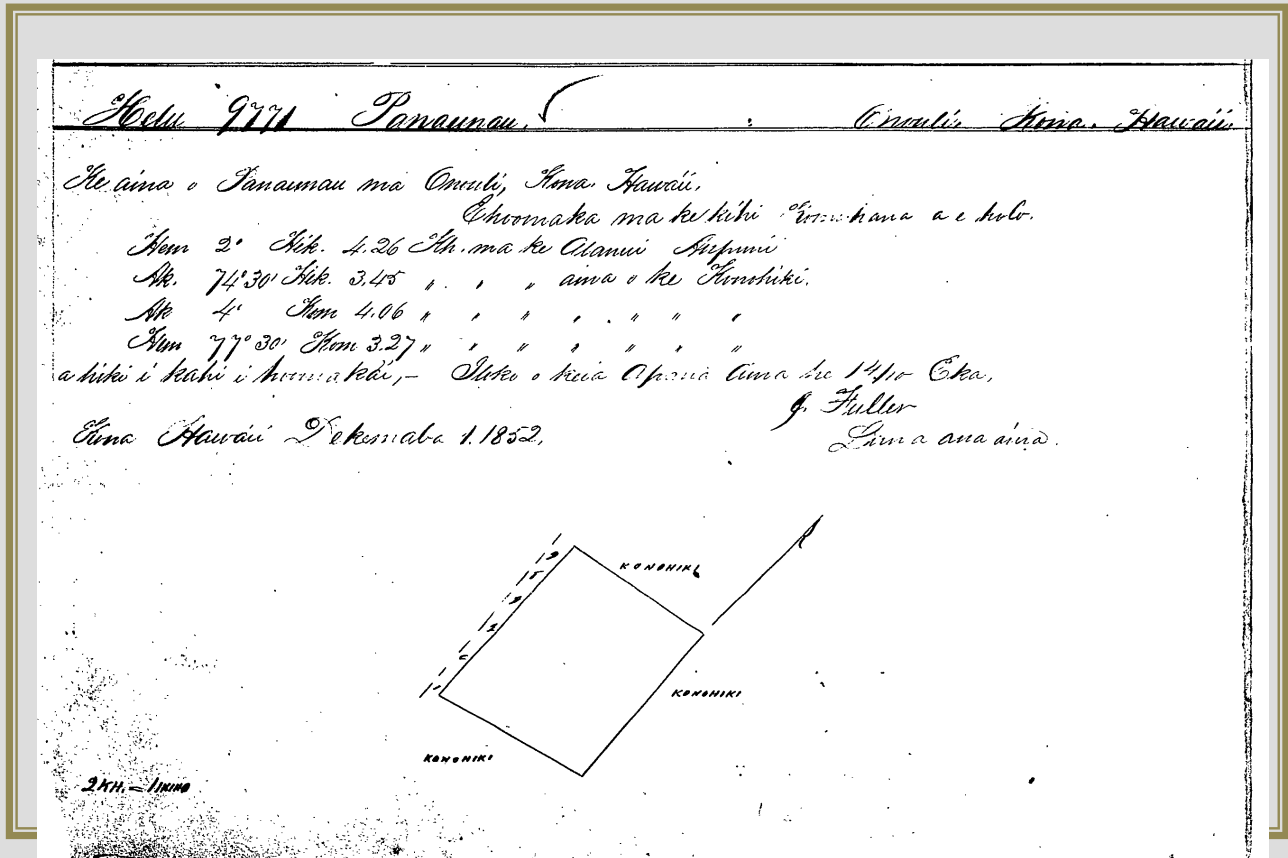 Helu 9771 Panaunau. Onouli. Kona. Hawaii.
Ke aina o Panaunau ma Onouli, Kona. Hawaii.
Ehoomaka ma ke kihi Komohana a e holo.
Hem 2° Hik. 4.26 Kh. ma ke Alanui Aupuni
Ak. 74°30' Hik. 3.45 " " " aina o ke Konohiki.
Ak 4° Kom 4.06 " " " " " " "
Hem 77°30' Kom 3.27 " " " " " " "
a hiki i kahi i hoomakai,- Iloko o keia Apana Aina he 1 4/10 Eka.
J. Fuller
Kona Hawaii Dekemaba 1. 1852. Luna ana aina.
KONOHIKI
KONOHIKI
KONOHIKI
2 KH. = 1